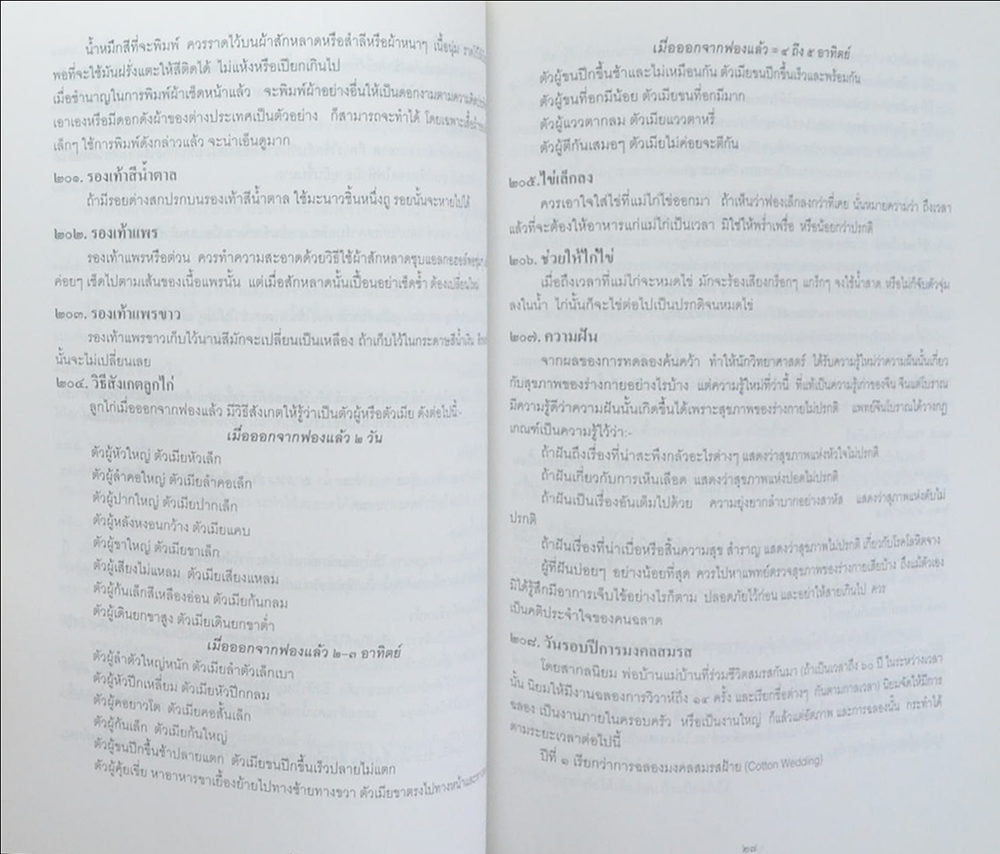 น้ำหมึกสีที่จะพิมพ์ ควรราดไว้บนผ้าสักหลาดหรือสำลีหรือผ้าหนาๆ เนื้อนุ่ม
พอที่จะใช้มันฝรั่งแตะให้สีติดได้ ไม่แห้งหรือเปียกเกินไป
เมื่อชำนาญในการพิมพ์ผ้าเช็ดหน้าแล้ว จะพิมพ์ผ้าอย่างอื่นให้เป็นดอกงามตามความคิด
เอาเองหรือมีดอกดังผ้าของต่างประเทศเป็นตัวอย่าง ก็สามารถจะทำได้ โดยเฉพาะเสื้อ
เล็กๆ ใช้การพิมพ์ดังกล่าวแล้ว จะน่าเอ็นดูมาก
๒๐๑. รองเท้าสีน้ำตาล
ถ้ามีรอยด่างสกปรกบนรองเท้าสีน้ำตาล ใช้มะนาวชิ้นหนึ่งถู รอยนั้นจะหายไปได้
๒๐๒. รองเท้าแพร
รองเท้าแพรหรือต่วน ควรทำความสะอาดด้วยวิธีใช้ผ้าสักหลาดชุบแอลกอฮอล์
ค่อยๆ เช็ดไปตามเส้นของเนื้อแพรนั้น แต่เมื่อสักหลาดนั้นเปื้อนอย่าเช็ดซ้ำ ต้องเปลี่ยนใหม่
๒๐๓. รองเท้าแพรขาว
รองเท้าแพรขาวเก็บไว้นานสีมักจะเปลี่ยนเป็นเหลือง ถ้าเก็บไว้ในกระดาษสีน้ำเงิน
นั้นจะไม่เปลี่ยนเลย
๒๐๔. วิธีสังเกตลูกไก่
ลูกไก่เมื่อออกจากฟองแล้ว มีวิธีสังเกตให้รู้ว่าเป็นตัวผู้หรือตัวเมีย ดังต่อไปนี้-
เมื่อออกจากฟองแล้ว ๒ วัน
ตัวผู้หัวใหญ่ ตัวเมียหัวเล็ก
ตัวผู้ลำคอใหญ่ ตัวเมียลำคอเล็ก
ตัวผู้ปากใหญ่ ตัวเมียปากเล็ก
ตัวผู้หลังหงอนกว้าง ตัวเมียแคบ
ตัวผู้ขาใหญ่ ตัวเมียขาเล็ก
ตัวผู้เสียงไม่แหลม ตัวเมียเสียงแหลม
ตัวผู้ก้นเล็กสีเหลืองอ่อน ตัวเมียก้นกลม
ตัวผู้เดินยกขาสูง ตัวเมียเดินยกขาต่ำ
เมื่อออกจากฟองแล้ว ๒-๓ อาทิตย์
ตัวผู้ลำตัวใหญ่หนัก ตัวเมียลำตัวเล็กเบา
ตัวผู้หัวปีกเหลี่ยม ตัวเมียหัวปีกกลม
ตัวผู้คอยาวโต ตัวเมียคอสั้นเล็ก
ตัวผู้ก้นเล็ก ตัวเมียก้นใหญ่
ตัวผู้ขนปีกขึ้นช้าปลายแตก ตัวเมียขนปีกขึ้นเร็วปลายไม่แตก
ตัวผู้คุ้ยเขี่ย หาอาหารขาเยื้องย้ายไปทางซ้ายทางขวา ตัวเมียขาตรงไปทางหน้า
เมื่อออกจากฟองแล้ว = ๔ ถึง ๕ อาทิตย์
ตัวผู้ขนปีกขึ้นช้าและไม่เหมือนกัน ตัวเมียขนปีกขึ้นเร็วและพร้อมกัน
ตัวผู้ขนที่อกมีน้อย ตัวเมียขนที่อกมีมาก
ตัวผู้แววตากลม ตัวเมียแววตาหรี่
ตัวผู้ตีกันเสมอๆ ตัวเมียไม่ค่อยจะตีกัน
๒๐๕. ไข่เล็กลง
ควรเอาใจใส่ไข่ที่แม่ไก่ไข่ออกมา ถ้าเห็นว่าฟองเล็กลงกว่าที่เคย นั่นหมายความว่า ถึงเวลา
แล้วที่จะต้องให้อาหารแก่แม่ไก่เป็นเวลา มิใช่ให้พร่ำเพรื่อ หรือน้อยกว่าปรกติ
๒๐๖. ช่วยให้ไก่ไข่
เมื่อถึงเวลาที่แม่ไก่จะหมดไข่ มักจะร้องเสียงกร็อกๆ แกร็กๆ จงใช้น้ำสาด หรือไม่ก็จับตัวจุ่ม
ลงในน้ำ ไก่นั้นก็จะไข่ต่อไปเป็นปรกติจนหมดไข่
๒๐๗. ความฝัน
จากผลของการทดลองค้นคว้า ทำให้นักวิทยาศาสตร์ ได้รับความรู้ใหม่ว่าความฝันนั้นเกี่ยว
กับสุขภาพของร่างกายอย่างไรบ้าง แต่ความรู้ใหม่ที่ว่านี้ ที่แท้เป็นความรู้เก่าของจีน จีนแต่โบราณ
มีความรู้ดีว่าความฝันนั้นเกิดขึ้นได้เพราะสุขภาพของร่างกายไม่ปรกติ แพทย์จีนโบราณได้วางกฎ
เกณฑ์เป็นความรู้ไว้ว่า:-
ถ้าฝันถึงเรื่องที่น่าสะพึงกลัวอะไรต่างๆ แสดงว่าสุขภาพแห่งหัวใจไม่ปรกติ
ถ้าฝันเกี่ยวกับการเห็นเลือด แสดงว่าสุขภาพแห่งปอดไม่ปรกติ
ถ้าฝันเป็นเรื่องอันเต็มไปด้วย ความยุ่งยากลำบากอย่างสาหัส แสดงว่าสุขภาพแห่งตับไม่
ปรกติ
ถ้าฝันเรื่องที่น่าเบื่อหรือสิ้นความสุข สำราญ แสดงว่าสุขภาพไม่ปรกติ เกี่ยวกับโรคโลหิตจาง
ผู้ที่ฝันบ่อยๆ อย่างน้อยที่สุด ควรไปหาแพทย์ตรวจสุขภาพของร่างกายเสียบ้าง ถึงแม้ตัวเอง
มิได้รู้สึกมีอาการเจ็บไข้อย่างไรก็ตาม ปลอดภัยไว้ก่อน และอย่าให้สายเกินไป ควร
เป็นคติประจำใจของคนฉลาด
๒๐๘. วันรอบปีการมงคลสมรส
โดยสากลนิยม พ่อบ้านแม่บ้านที่ร่วมชีวิตสมรสกันมา (ถ้าเป็นเวลาถึง ๖๐ ปี ในระหว่างเวลา
นั้น นิยมให้มีงานฉลองการวิวาห์ถึง ๑๔ ครั้ง และเรียกชื่อต่างๆ กันตามกาลเวลา) นิยมจัดให้มีการ
ฉลอง เป็นงานภายในครอบครัว หรือเป็นงานใหญ่ ก็แล้วแต่อัตภาพ และการฉลองนั้น กระทำได้
ตามระยะเวลาต่อไปนี้
ปีที่ ๑ เรียกว่าการฉลองมงคลสมรสฝ้าย (Cotton Wedding)
๒๗